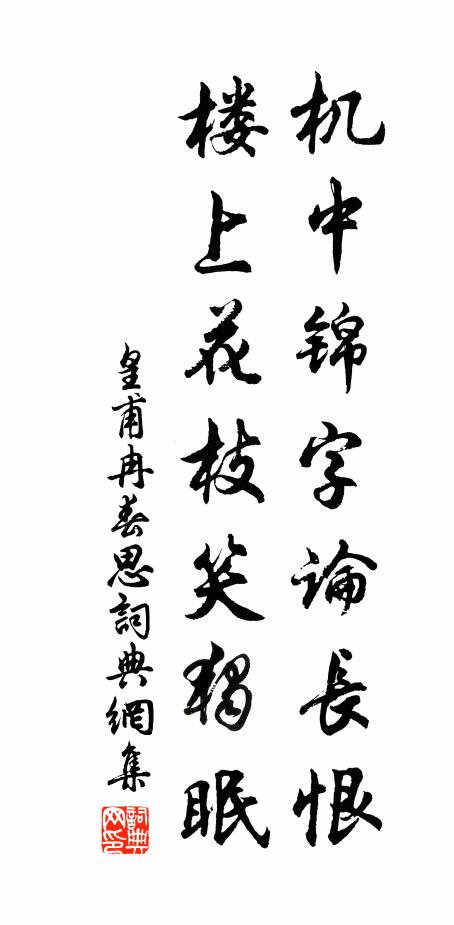 机中锦字論長恨
楼上花枝笑獨眠
皇甫冉春思詞典網集
詞典网印